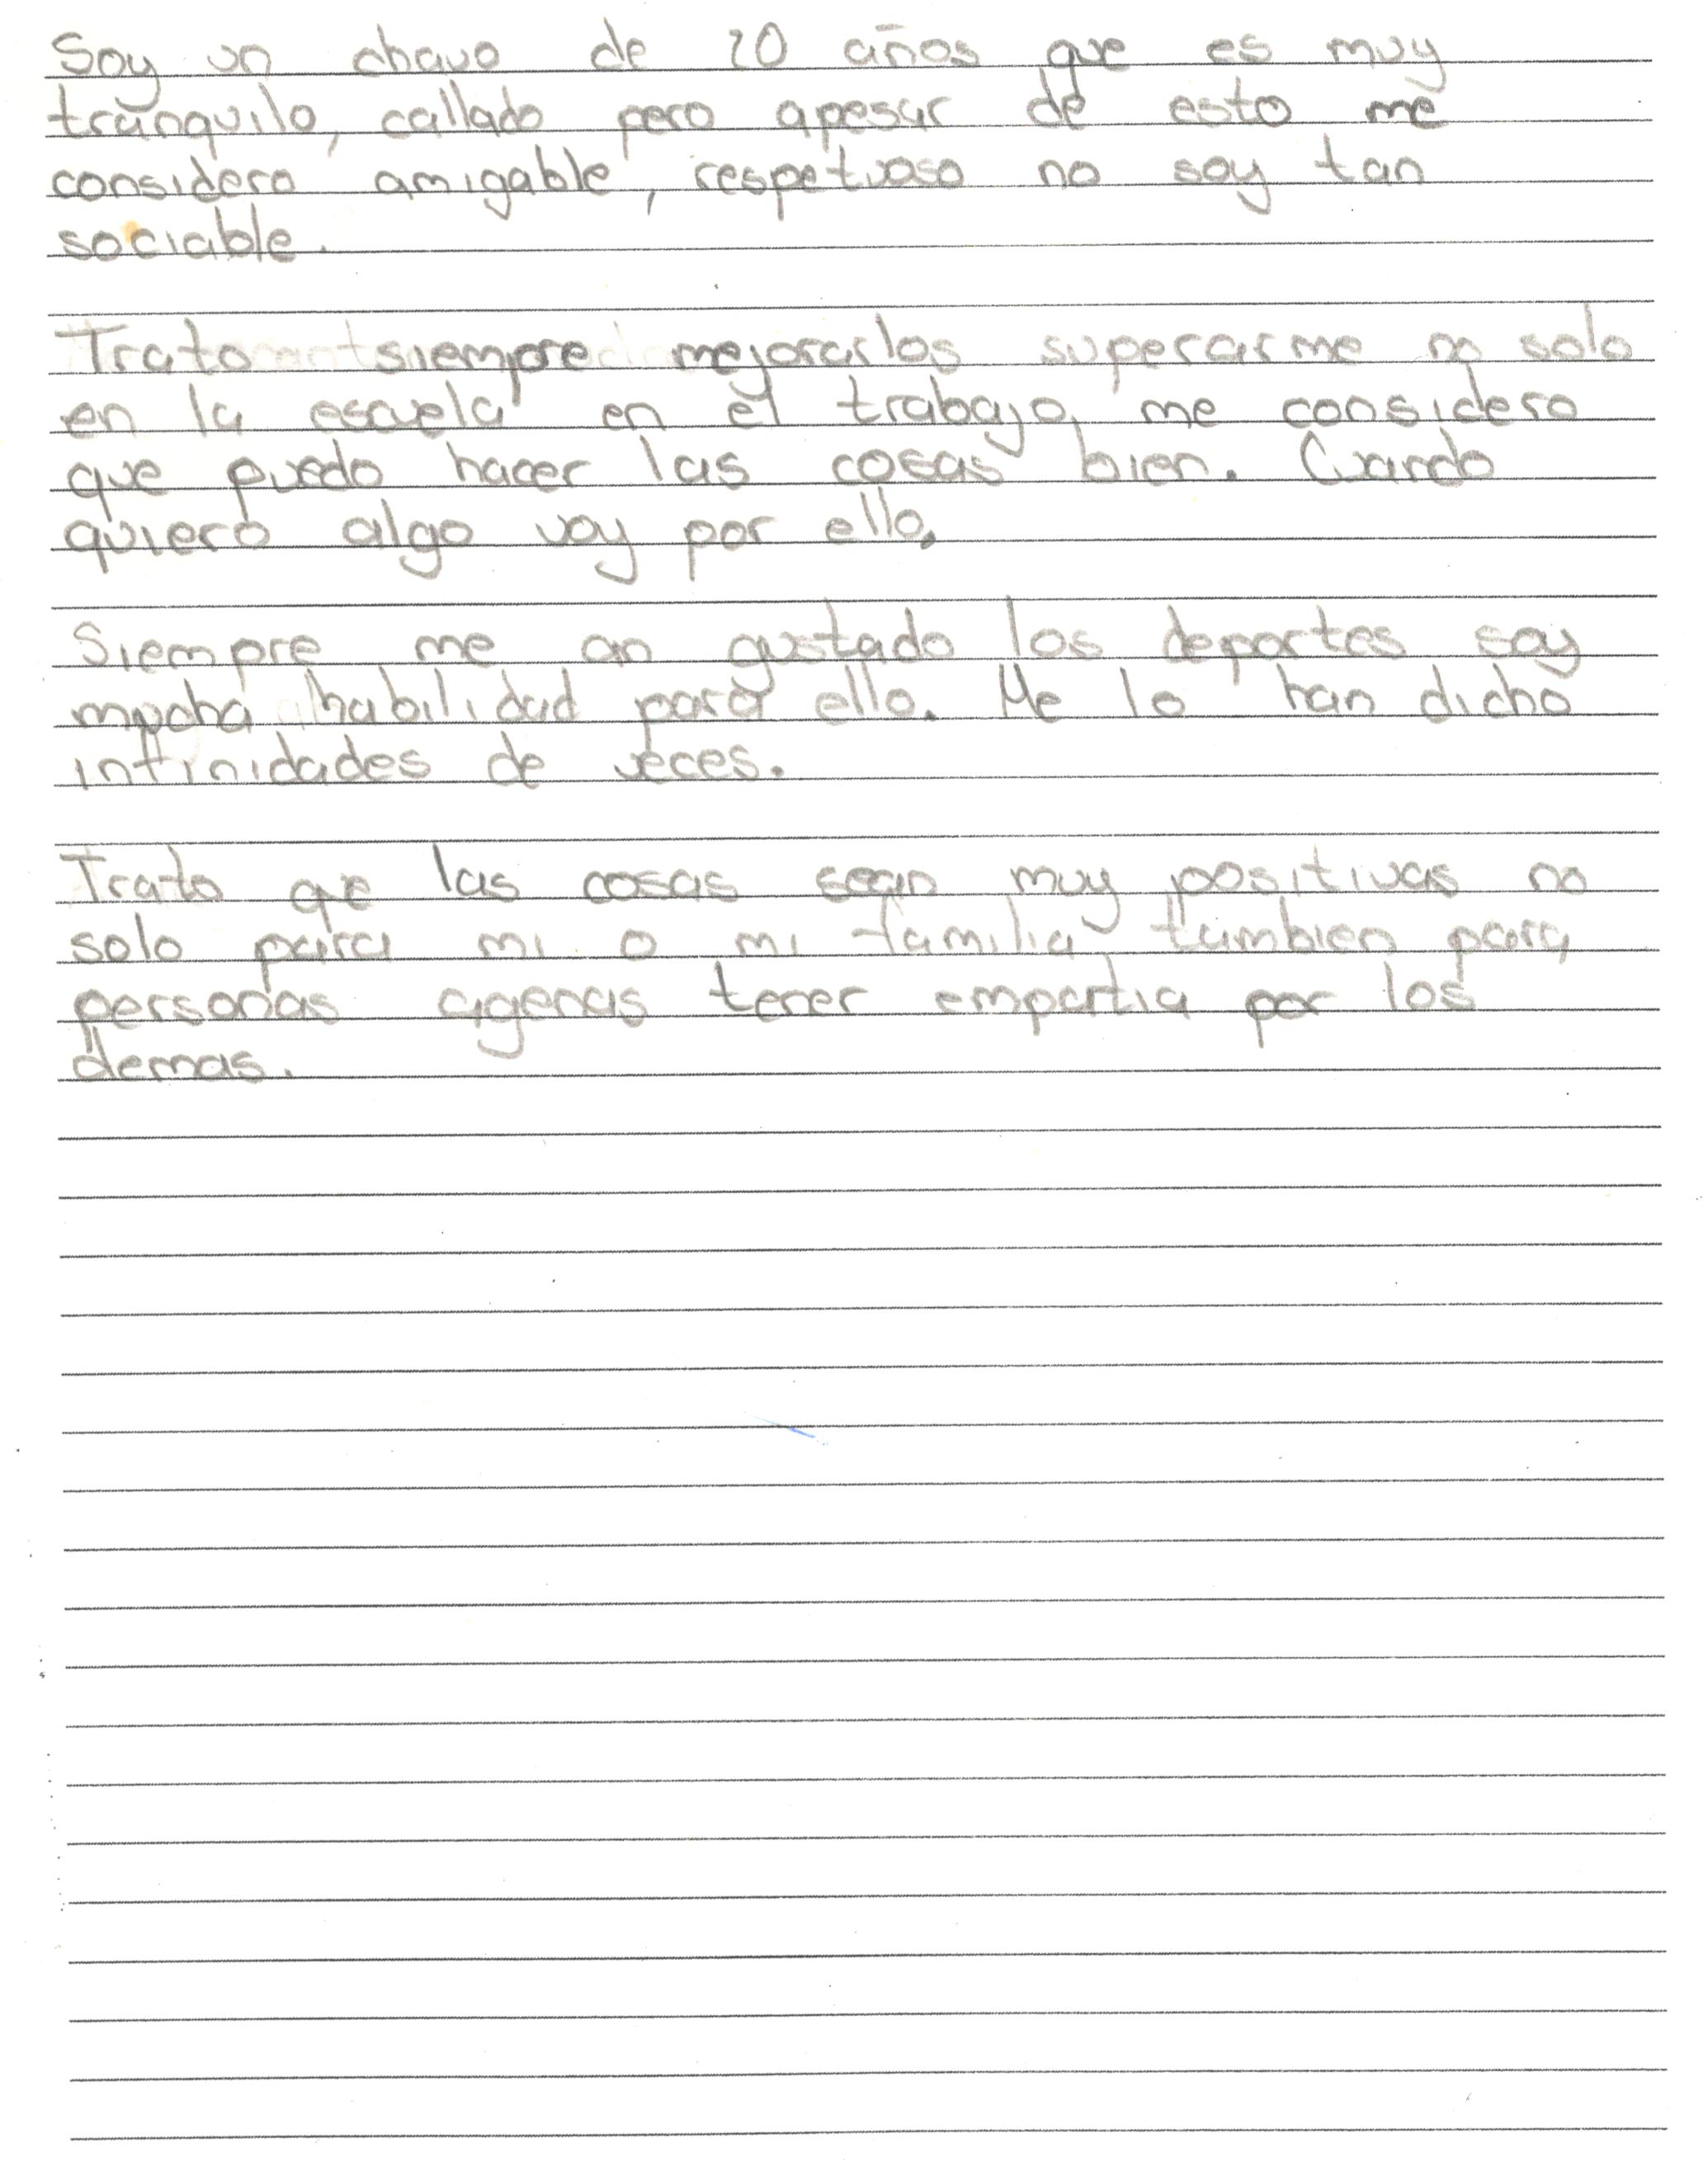 Soy un chavo de 20 años que es muy
tranquilo, callado pero apesar de esto me
considero amigable, respetuoso no soy tan
sociable.
Trato siempre mejorarlos superarme no solo
en la escuela en el trabajo, me considero
que puedo hacer las cosas bien. Cuando
quiero algo voy por ello.
Siempre me an gustado los deportes soy
mucha habilidad para ello. Me lo han dicho
infinidades de veces.
Trato que las cosas sean muy positivas no
solo para mi o mi familia tambien para
personas agenas tener empartia por los
demas.